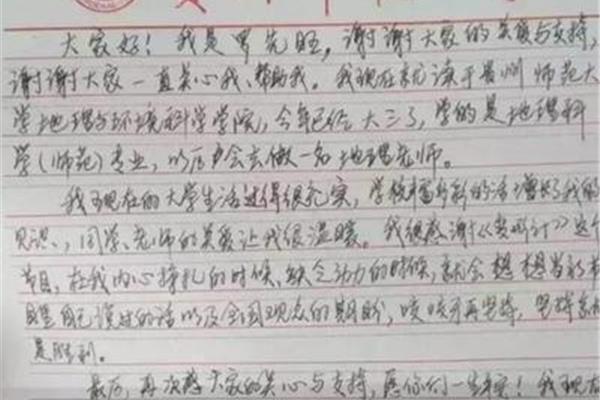 大家好！我是罗先旺，谢谢大家的关爱与支持，
谢谢大家一直关心我、帮助我。我现在就读于贵州师范大
学地理与环境科学学院，今年已经大三了，学的是地理科
学（师范）专业，以后也会去做一名地理老师。
我现在的大学生活过得很充实，学校丰富多彩的生活增长了我的
见识，同学、老师的关爱让我很温暖。我很感谢《变形计》这个
节目，在我内心挣扎的时候、缺乏动力的时候，就会想想当初节
目里自己说过的话以及全国观众的期盼，咬咬牙再坚持，坚持就
是胜利。
最后，再次感谢大家的关心与支持，愿你们一生平安！我现在